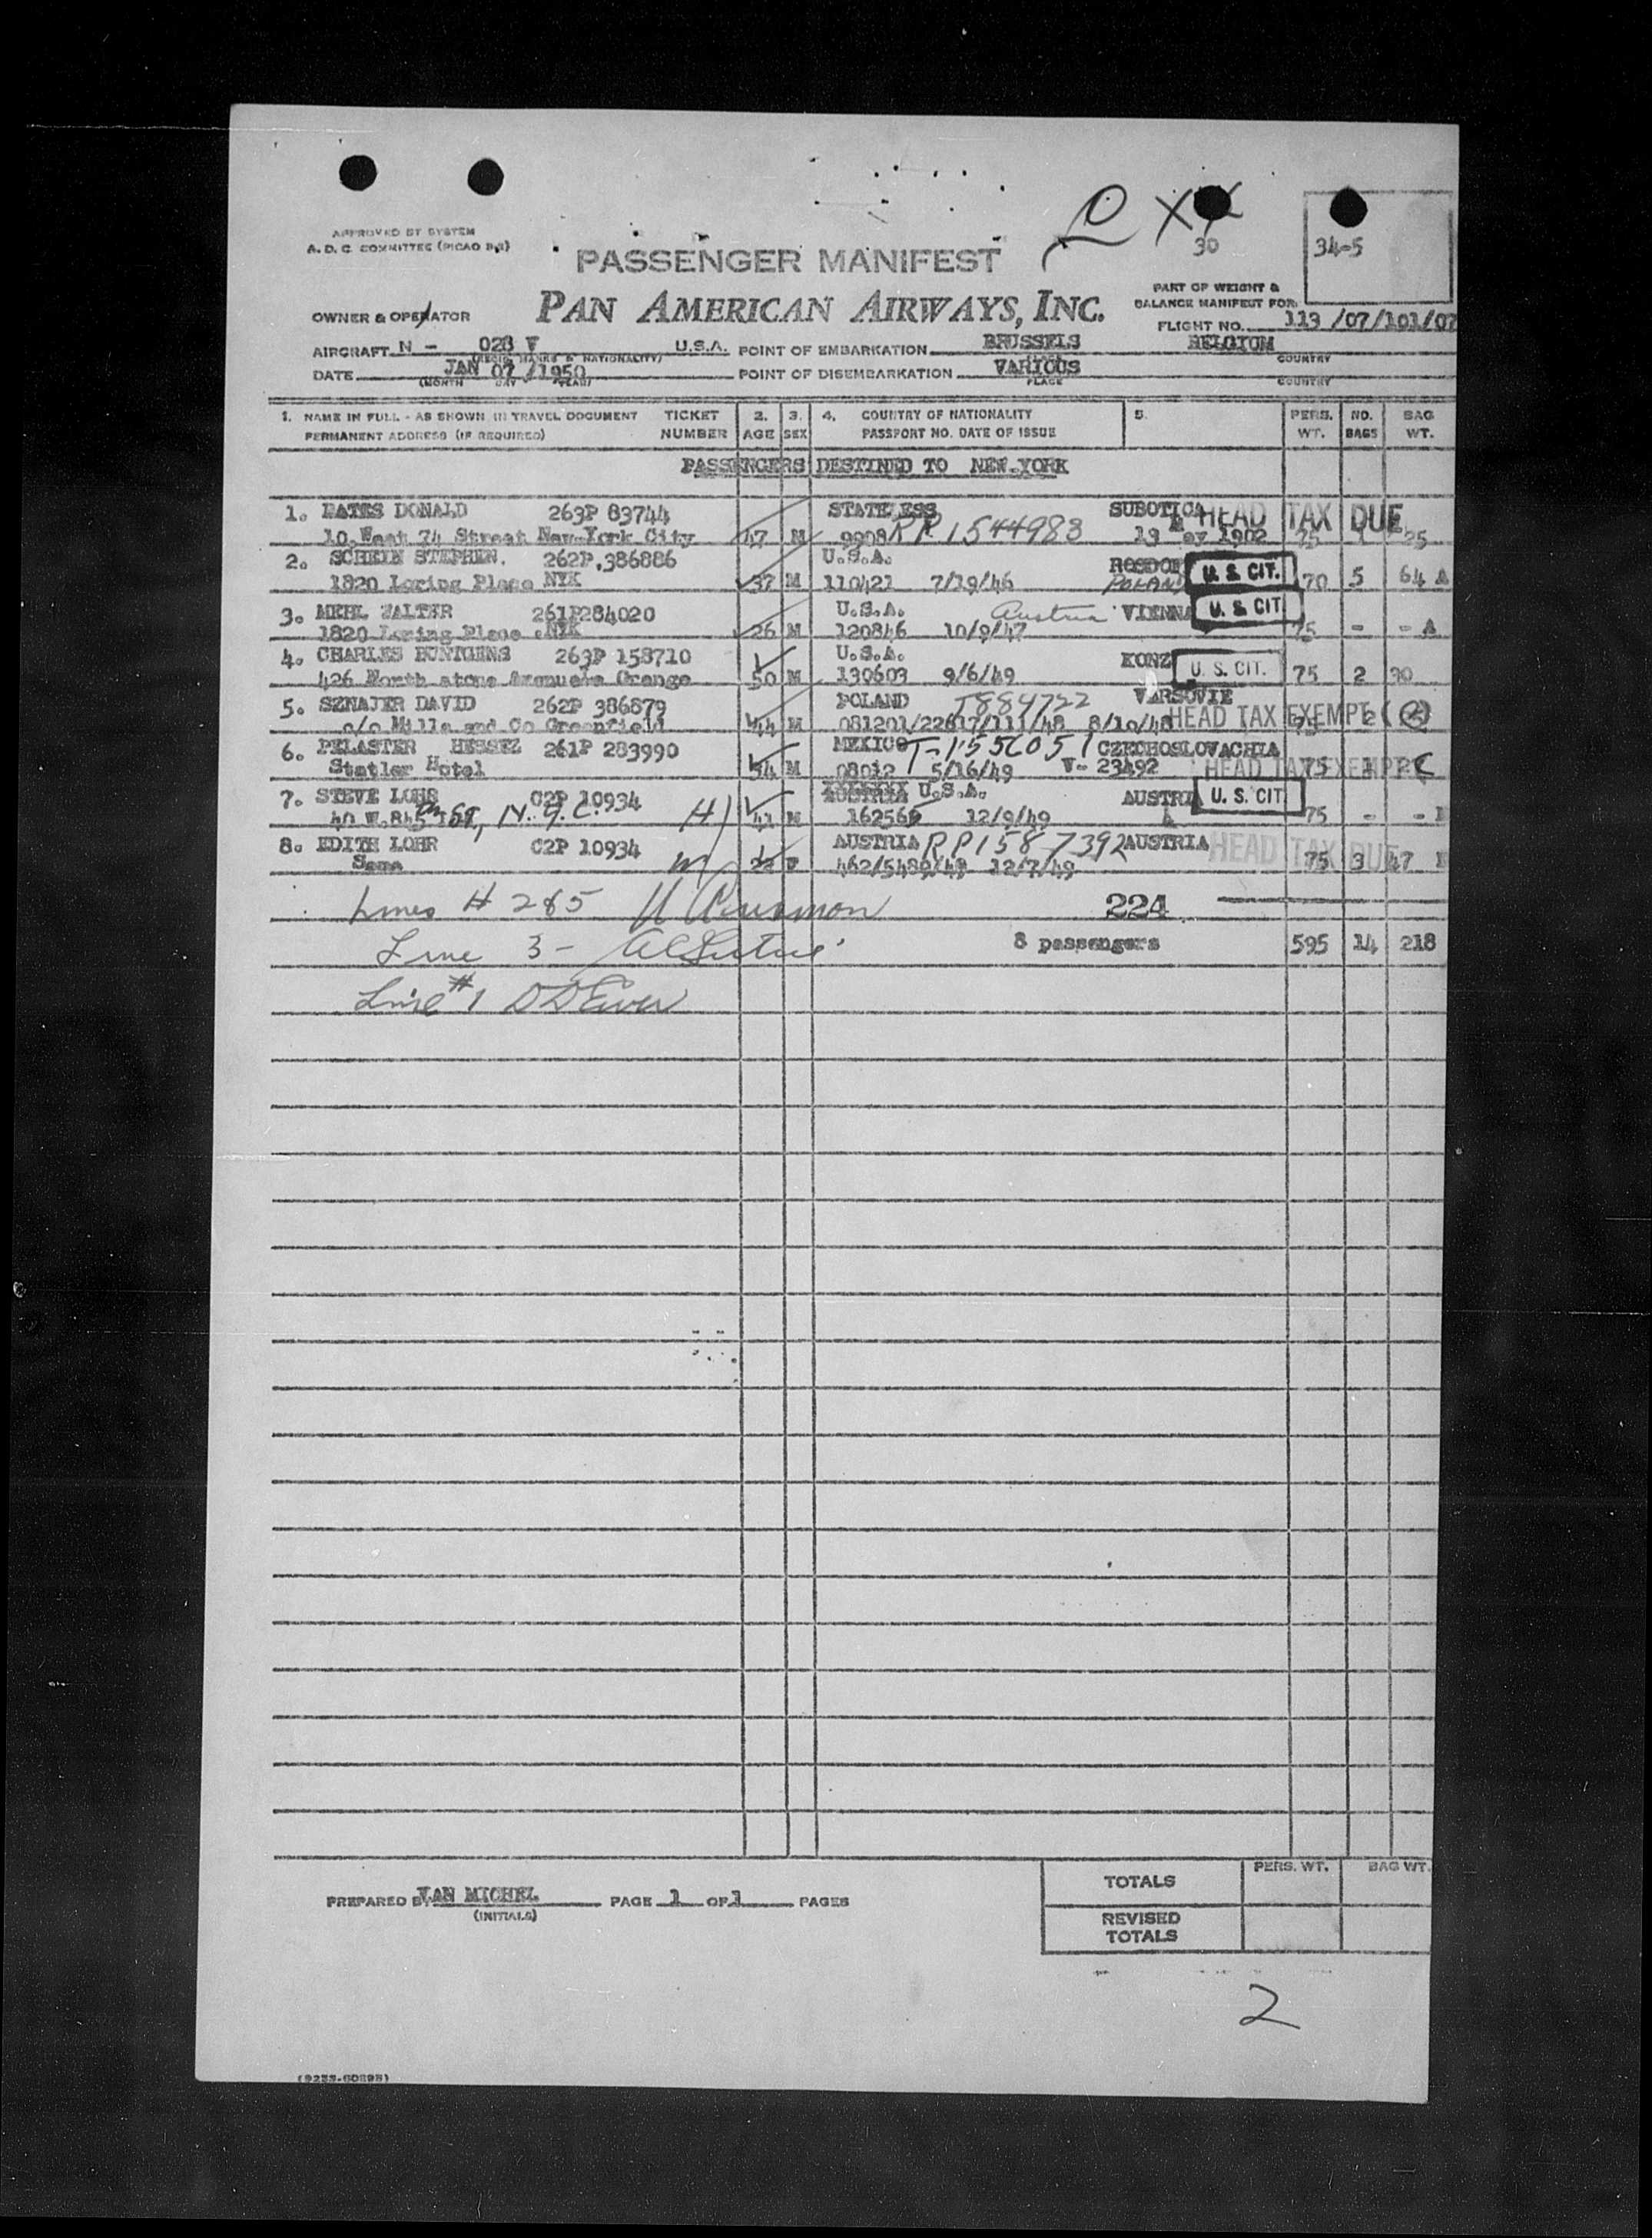 30
34-5
APPROVED BY SYSTEM
A. D. C. COMMITTEE (PICAO
PASSENGER MANIFEST
PART OF WEIGHT &
BALANCE MANIFEST FOR:
OWNER & OPERATOR PAN AMERICAN AIRWAYS, INC.
FLIGHT NO. 113 /07/101/07
AIRCRAFT N - 028 V U.S.A. POINT OF EMBARKATION BRUSSELS BELGIUM
(REGIS. MARKS & NATIONALITY) PLACE COUNTRY
DATE JAN 07 /1950 POINT OF DISEMBARKATION VARIOUS
(MONTH DAY YEAR) PLACE COUNTRY
1. NAME IN FULL - AS SHOWN IN TRAVEL DOCUMENT TICKET 2. 3. 4. COUNTRY OF NATIONALITY 5. PERS. NO. BAG
PERMANENT ADDRESS (IF REQUIRED) NUMBER AGE SEX PASSPORT NO. DATE OF ISSUE WT. BAGS WT.
PASSENGERS DESTINED TO NEW-YORK
1. BATES DONALD 263P 83744 STATELESS SUBOTICA HEAD TAX DUE
10 West 74 Street New-York City 47 M 9908 RP 1544983 13 May 1902 75 1 25
2. SCHEIN STEPHEN. 262P.386886 U.S.A. U. S. CIT.
1820 Loring Place NYK 37 M 110421 7/19/46 POLAND 70 5 64 A
3. MEHL WALTER 261P284020 U.S.A. Austria VIENNA U. S. CIT
1820 Loring Place NYK 26 M 120846 10/9/47 75 - - A
4. CHARLES BUNTGENS 263P 158710 U.S.A. KONZ U. S. CIT.
426 North Orange 50 M 130603 9/6/49 75 2 30
5. SZNAJER DAVID 262P 386879 POLAND T884722 VARSOVIE
c/o Mills and Co Greenfield 44 M 081201/22817/111/48 8/10/48 HEAD TAX EXEMPT 75 2
6. PELASTER 261P 283990 MEXICO T-1556051 CZECHOSLOVACHIA
Statler Hotel 54 M 08012 5/16/49 V- 23492 HEAD TAX EXEMPT 75 1
7. STEVE LOHR C2P 10934 U.S.A. AUSTRIA U. S. CIT
40 W. 84 5th St, N. Y. C. H 41 M 162565 12/9/49 75 - -
8. EDITH LOHR C2P 10934 AUSTRIA RP1587392 AUSTRIA HEAD TAX DUE
Same F 462/5489/49 12/7/49 75 3 47
Lines # 285 224
Line 3 - 8 passengers 595 14 218
Line #1
PREPARED BY VAN MICHEL PAGE 1 OF 1 PAGES
(INITIALS)
PERS. WT. BAG WT.
TOTALS
REVISED
TOTALS
2